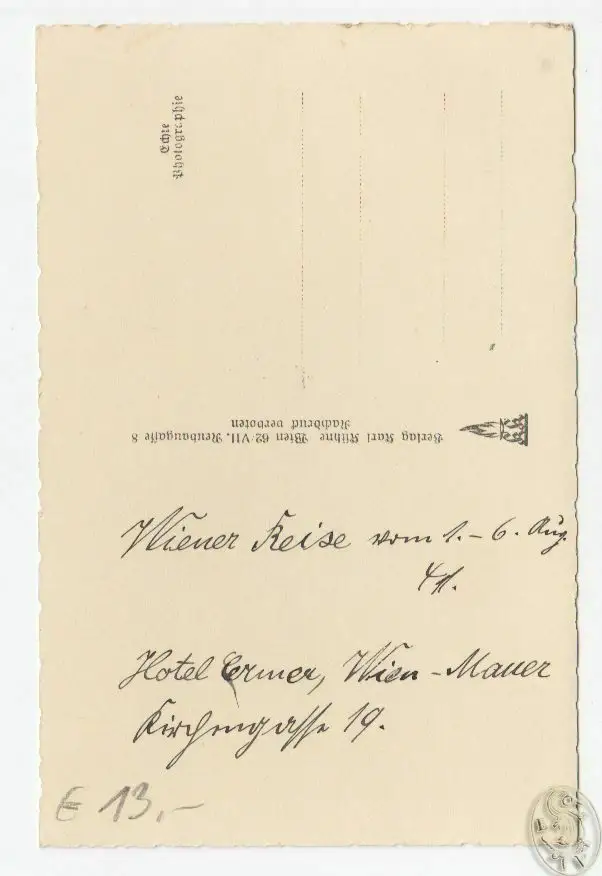 Echte
Photographie
Verlag Karl Kühne Wien 62/VII, Neubaugasse 8
Nachdruck verboten
Wiener Reise vom 1. – 6. Aug.
41.
Hotel Ermer, Wien – Mauer
Kirchengasse 19.
€ 13,–